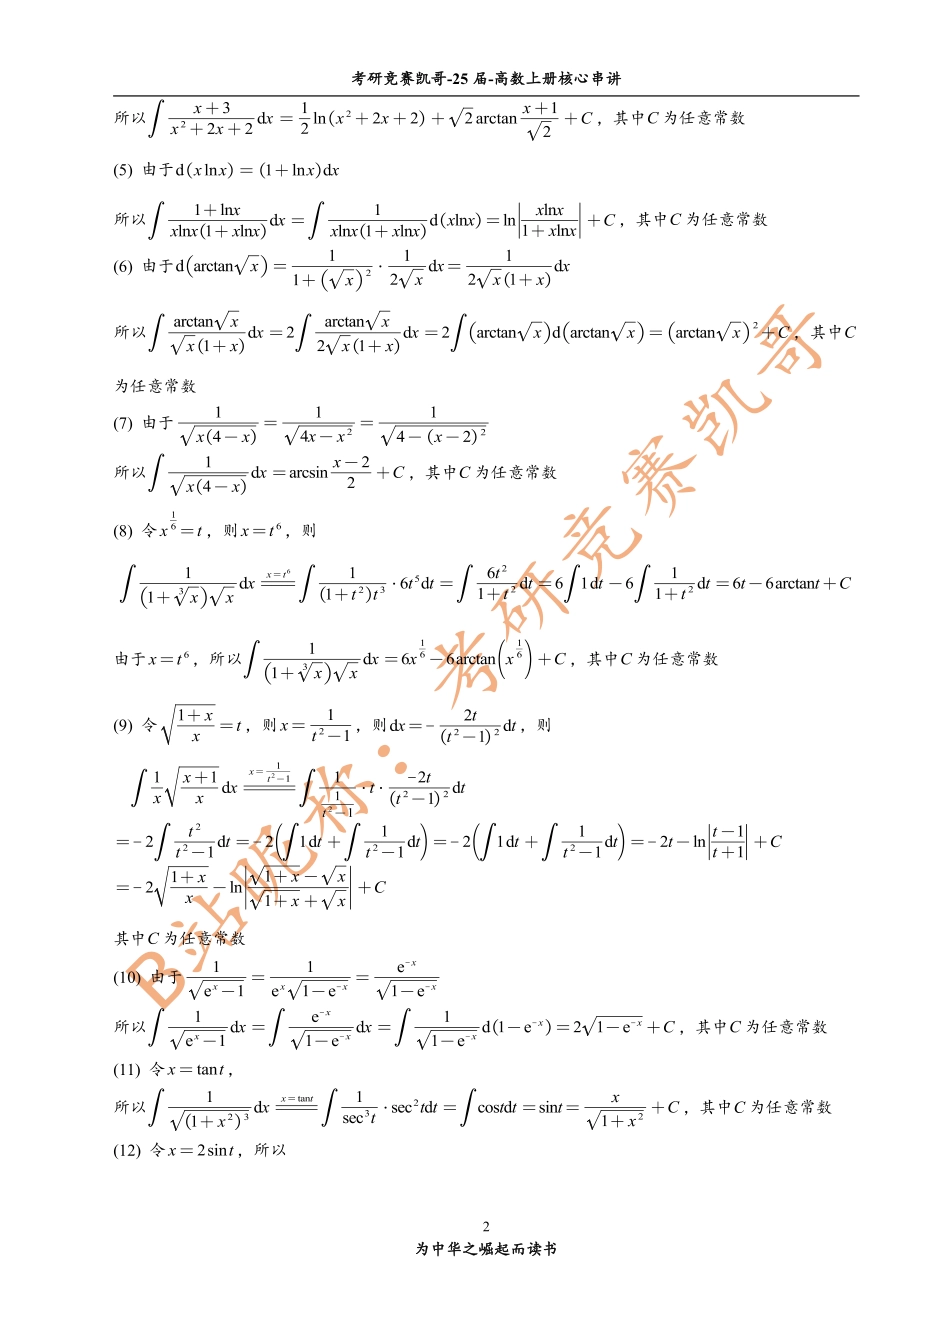 考研竞赛凯哥-25 届-高数上册核心串讲
所以∫ (x+3)/(x²+2x+2) dx = 1/2 ln(x²+2x+2) + √2 arctan (x+1)/√2 + C，其中C 为任意常数
(5) 由于d(x lnx) = (1+lnx)dx
所以∫ (1+lnx)/(xlnx(1+xlnx)) dx = ∫ 1/(xlnx(1+xlnx)) d(xlnx) = ln|xlnx/(1+xlnx)| + C，其中C 为任意常数
(6) 由于d(arctan√x) = 1/(1+(√x)²) · 1/(2√x) dx = 1/(2√x(1+x)) dx
所以∫ arctan√x/(√x(1+x)) dx = 2∫ arctan√x/(2√x(1+x)) dx = 2∫(arctan√x)d(arctan√x) = (arctan√x)² + C，其中C
为任意常数
(7) 由于 1/√(x(4-x)) = 1/√(4x-x²) = 1/√(4-(x-2)²)
所以∫ 1/√(x(4-x)) dx = arcsin (x-2)/2 + C，其中C 为任意常数
(8) 令x^(1/6) = t，则x = t⁶，则
∫ 1/((1+∛x)√x) dx =(x=t⁶)= ∫ 1/((1+t²)t³) · 6t⁵dt = ∫ 6t²/(1+t²) dt = 6∫1dt - 6∫ 1/(1+t²) dt = 6t - 6arctant + C
由于x = t⁶，所以∫ 1/((1+∛x)√x) dx = 6x^(1/6) - 6arctan(x^(1/6)) + C，其中C 为任意常数
(9) 令√((1+x)/x) = t，则x = 1/(t²-1)，则dx = - 2t/(t²-1)² dt，则
∫ 1/x √((x+1)/x) dx =(x=1/(t²-1))= ∫ 1/(1/(t²-1)) · t · -2t/(t²-1)² dt
= -2∫ t²/(t²-1) dt = -2(∫1dt + ∫ 1/(t²-1) dt) = -2(∫1dt + ∫ 1/(t²-1) dt) = -2t - ln|(t-1)/(t+1)| + C
= -2√((1+x)/x) - ln|(√(1+x)-√x)/(√(1+x)+√x)| + C
其中C 为任意常数
(10) 由于 1/√(eˣ-1) = 1/(eˣ√(1-e⁻ˣ)) = e⁻ˣ/√(1-e⁻ˣ)
所以∫ 1/√(eˣ-1) dx = ∫ e⁻ˣ/√(1-e⁻ˣ) dx = ∫ 1/√(1-e⁻ˣ) d(1-e⁻ˣ) = 2√(1-e⁻ˣ) + C，其中C 为任意常数
(11) 令x = tant，
所以∫ 1/√((1+x²)³) dx =(x=tant)= ∫ 1/sec³t · sec²tdt = ∫costdt = sint = x/√(1+x²) + C，其中C 为任意常数
(12) 令x = 2sint，所以
B站昵称：考研竞赛凯哥
2
为中华之崛起而读书